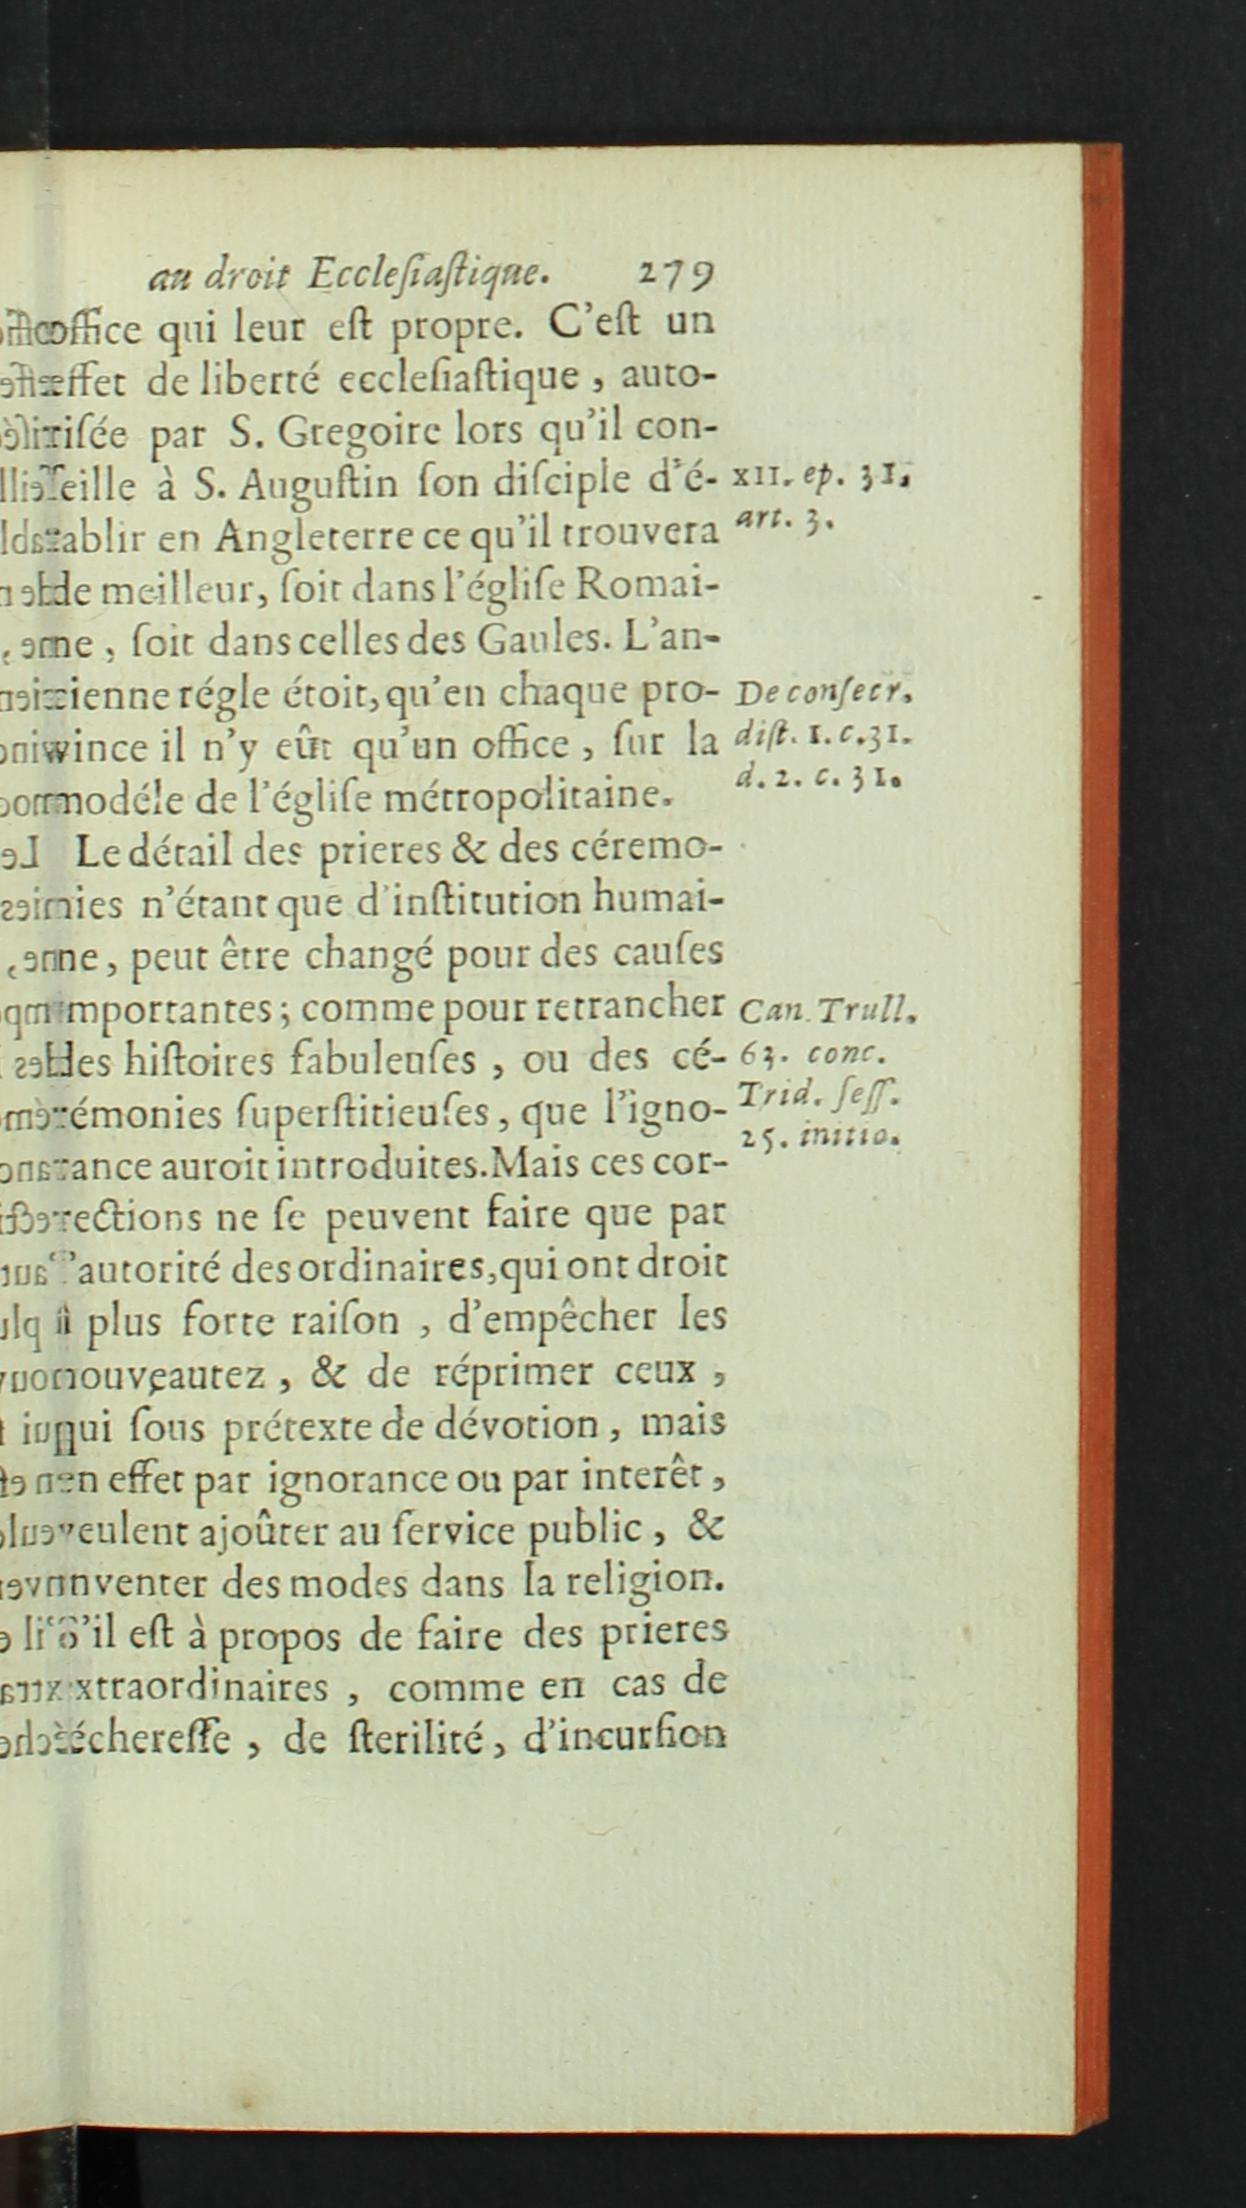 au droit Ecclesiastique. 279
office qui leur est propre. C'est un
effet de liberté ecclesiastique, auto-
risée par S. Gregoire lors qu'il con-
seille à S. Augustin son disciple d'é-
tablir en Angleterre ce qu'il trouvera
de meilleur, soit dans l'église Romai-
ne, soit dans celles des Gaules. L'an-
cienne régle étoit, qu'en chaque pro-
vince il n'y eût qu'un office, sur la
modéle de l'église métropolitaine.
Le détail des prieres & des céremo-
nies n'étant que d'institution humai-
ne, peut être changé pour des causes
importantes; comme pour retrancher
des histoires fabuleuses, ou des cé-
rémonies superstitieuses, que l'igno-
rance auroit introduites. Mais ces cor-
rections ne se peuvent faire que par
l'autorité des ordinaires, qui ont droit
à plus forte raison, d'empêcher les
nouveautez, & de réprimer ceux,
qui sous prétexte de dévotion, mais
en effet par ignorance ou par interêt,
veulent ajoûter au service public, &
inventer des modes dans la religion.
S'il est à propos de faire des prieres
extraordinaires, comme en cas de
sécheresse, de sterilité, d'incursion
XII. ep. 31.
art. 3.
De consecr.
dist. 1. c. 31.
d. 2. c. 31.
Can. Trull.
63. conc.
Trid. sess.
25. initio.